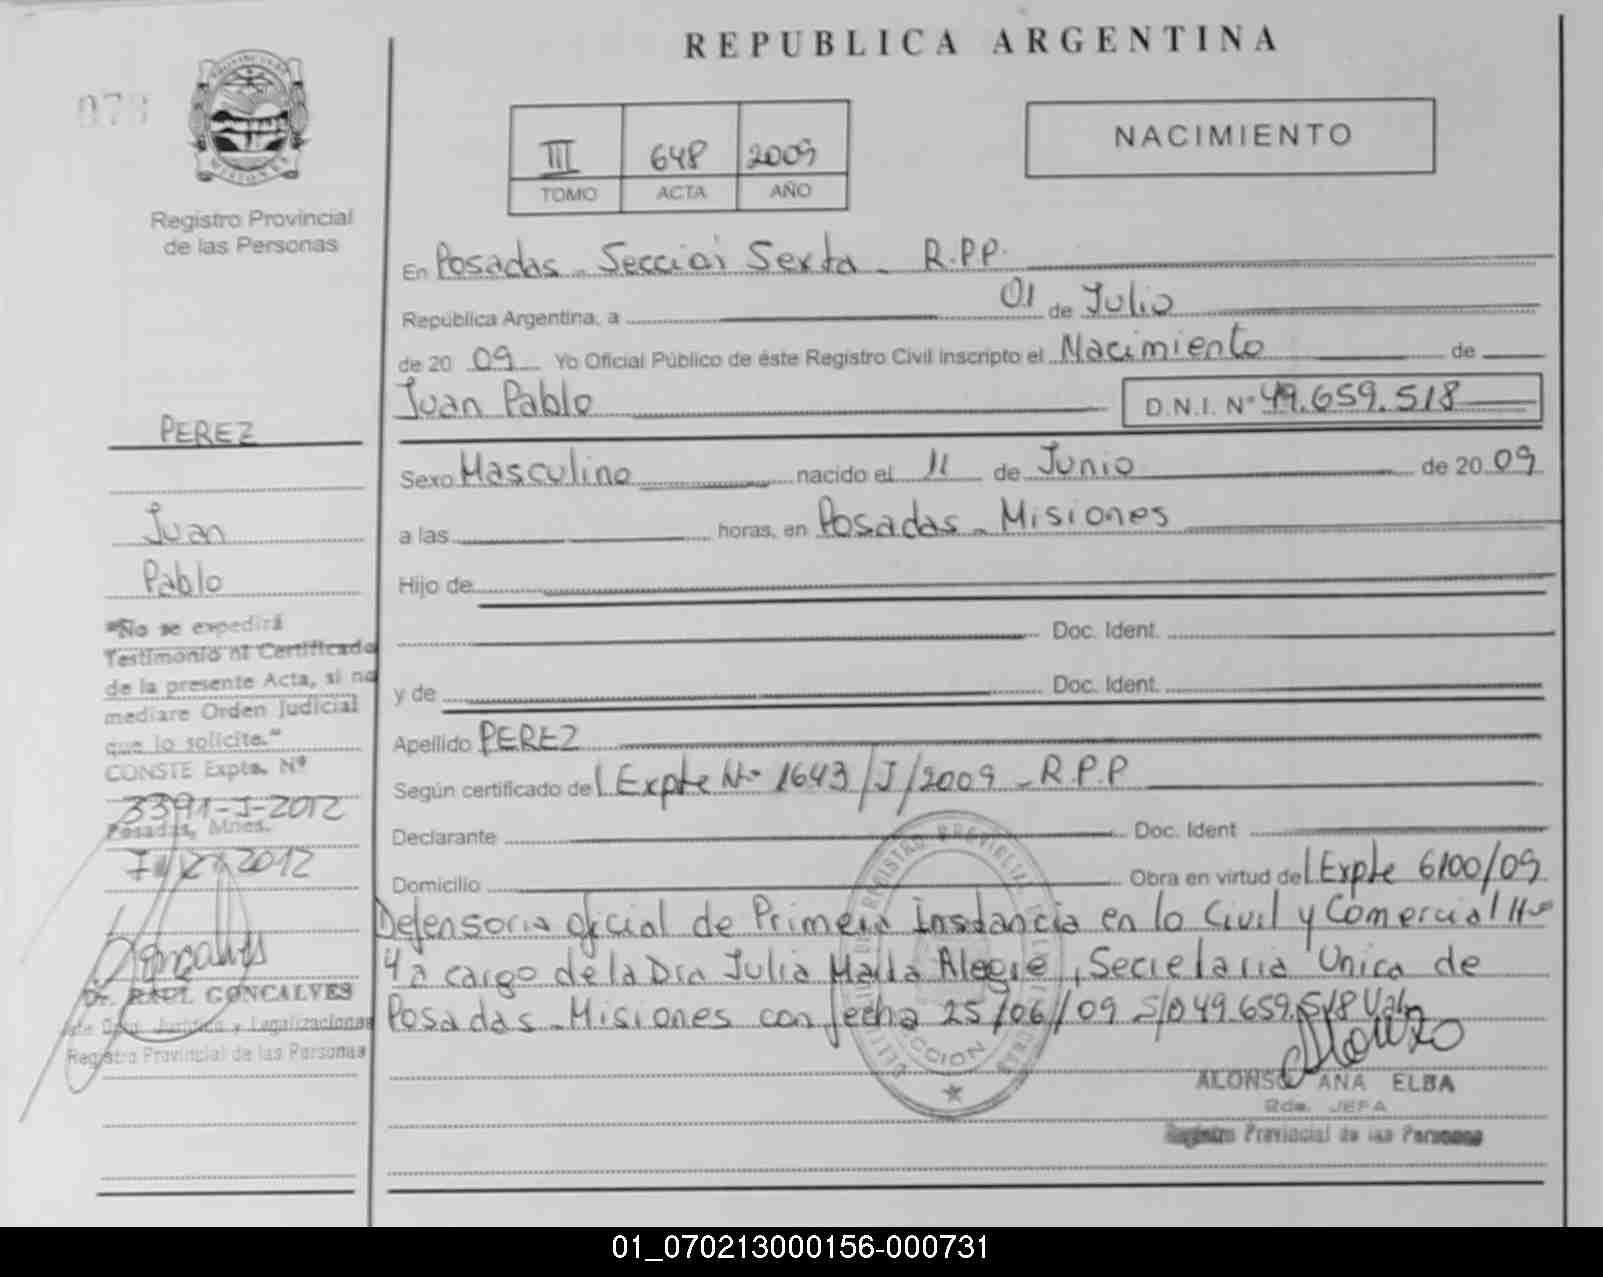 REPUBLICA ARGENTINA
073
PROVINCIA DE
MISIONES
Registro Provincial
de las Personas
III 648 2009
TOMO ACTA AÑO
NACIMIENTO
En Posadas - Secció Sexta - R.P.P.
República Argentina, a 01 de Julio
de 20 09 Yo Oficial Público de éste Registro Civil inscripto el Nacimiento de
Juan Pablo D.N.I. Nº 49.659.518
Sexo Masculino nacido el 11 de Junio de 20 09
a las horas, en Posadas - Misiones
Hijo de
Doc. Ident.
y de Doc. Ident.
Apellido PEREZ
Según certificado del Expte Nº 1643/J/2009 - R.P.P
Declarante Doc. Ident
Domicilio Obra en virtud del Expte 6100/09
Defensoria oficial de Primera Instancia en lo Civil y Comercial Nº
4 a cargo de la Dra Julia Alegre, Secretaria Unica de
Posadas - Misiones con fecha 25/06/09 S/D 49.659.518 Vale
ALONSO ANA ELBA
JEFA
Registro Provincial de las Personas
PEREZ
Juan
Pablo
"No se expedirá
Testimonio ni Certificado
de la presente Acta, si no
mediare Orden Judicial
que lo solicite."
CONSTE Expte. Nº
3391-J-2012
Posadas, Mnes.
2012
Goncalves
Dr. RAUL GONCALVES
de Jurídica y Legalizaciones
Registro Provincial de las Personas
01_070213000156-000731